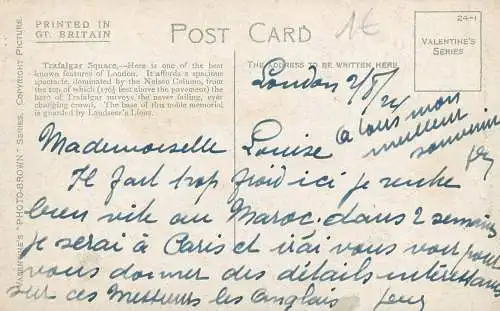 PRINTED IN
GT. BRITAIN
POST CARD
1€
24-1
VALENTINE'S
SERIES
Trafalgar Square,—Here is one of the best
known features of London. It affords a spacious
spectacle, dominated by the Nelson Column, from
the top of which (176½ feet above the pavement) the
hero of Trafalgar surveys the never failing, ever
changing crowd. The base of this noble memorial
is guarded by Landseer's Lions.
THE ADDRESS TO BE WRITTEN HERE
VALENTINE'S "PHOTO-BROWN" SERIES. COPYRIGHT PICTURE.
London 2/8/24
à tous mon
meilleur
souvenir
Mademoiselle Louise
Il fait trop froid ici je rentre
bien vite au Maroc. dans 2 semaines
je serai à Paris et irai vous voir pour
vous donner des détails intéressants
sur ces Messieurs les Anglais